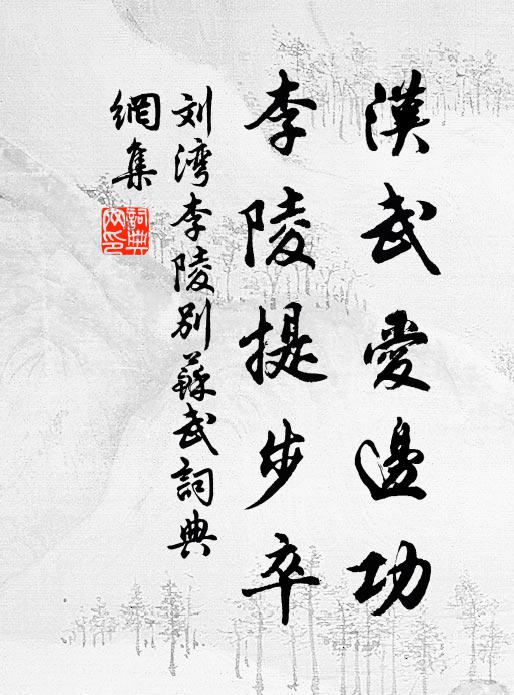 漢武愛邊功
李陵提步卒
刘湾李陵别蘇武詞典
網集
詞典
网印